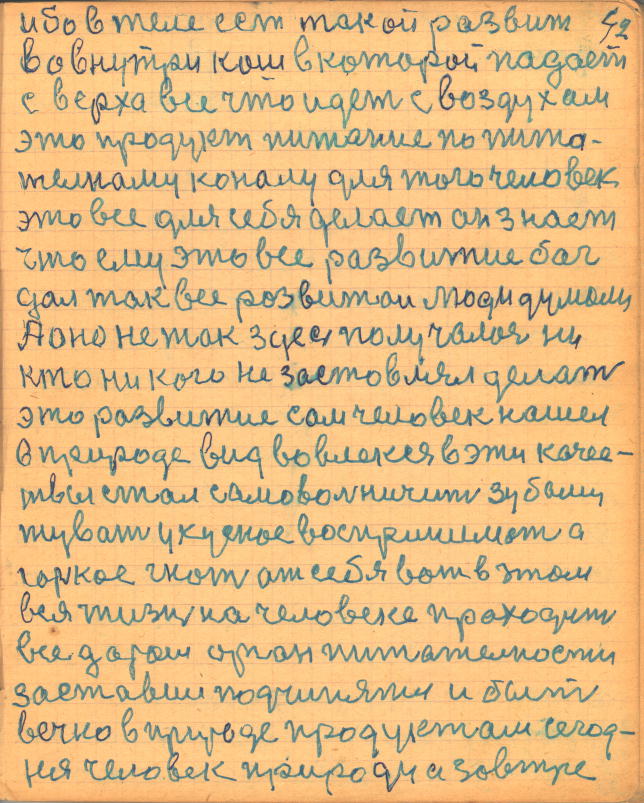 ибо в теле ест такой развит 42
во внутри кош в которой падает
с верха все что идет с воздухам
это продукт питание по пита-
телнаму коналу для того человек
это все для себя делает он знает
что ему это все развитие бог
дал так все розвитои люди думали
А оно не так здес получалося ни
кто никого не заставлял делат
это развитие сам человек нашел
в природе вид вовлекся в эти качес-
тва и стал самоволничит зубами
жуват укусное воспринимат а
горкое гнат от себя вот в этом
вся жизн на человеке праходит
все даром орган питателности
заставил подчинятся и быт
вечно в природе продуктам сегод-
ня человек природи а зовтре